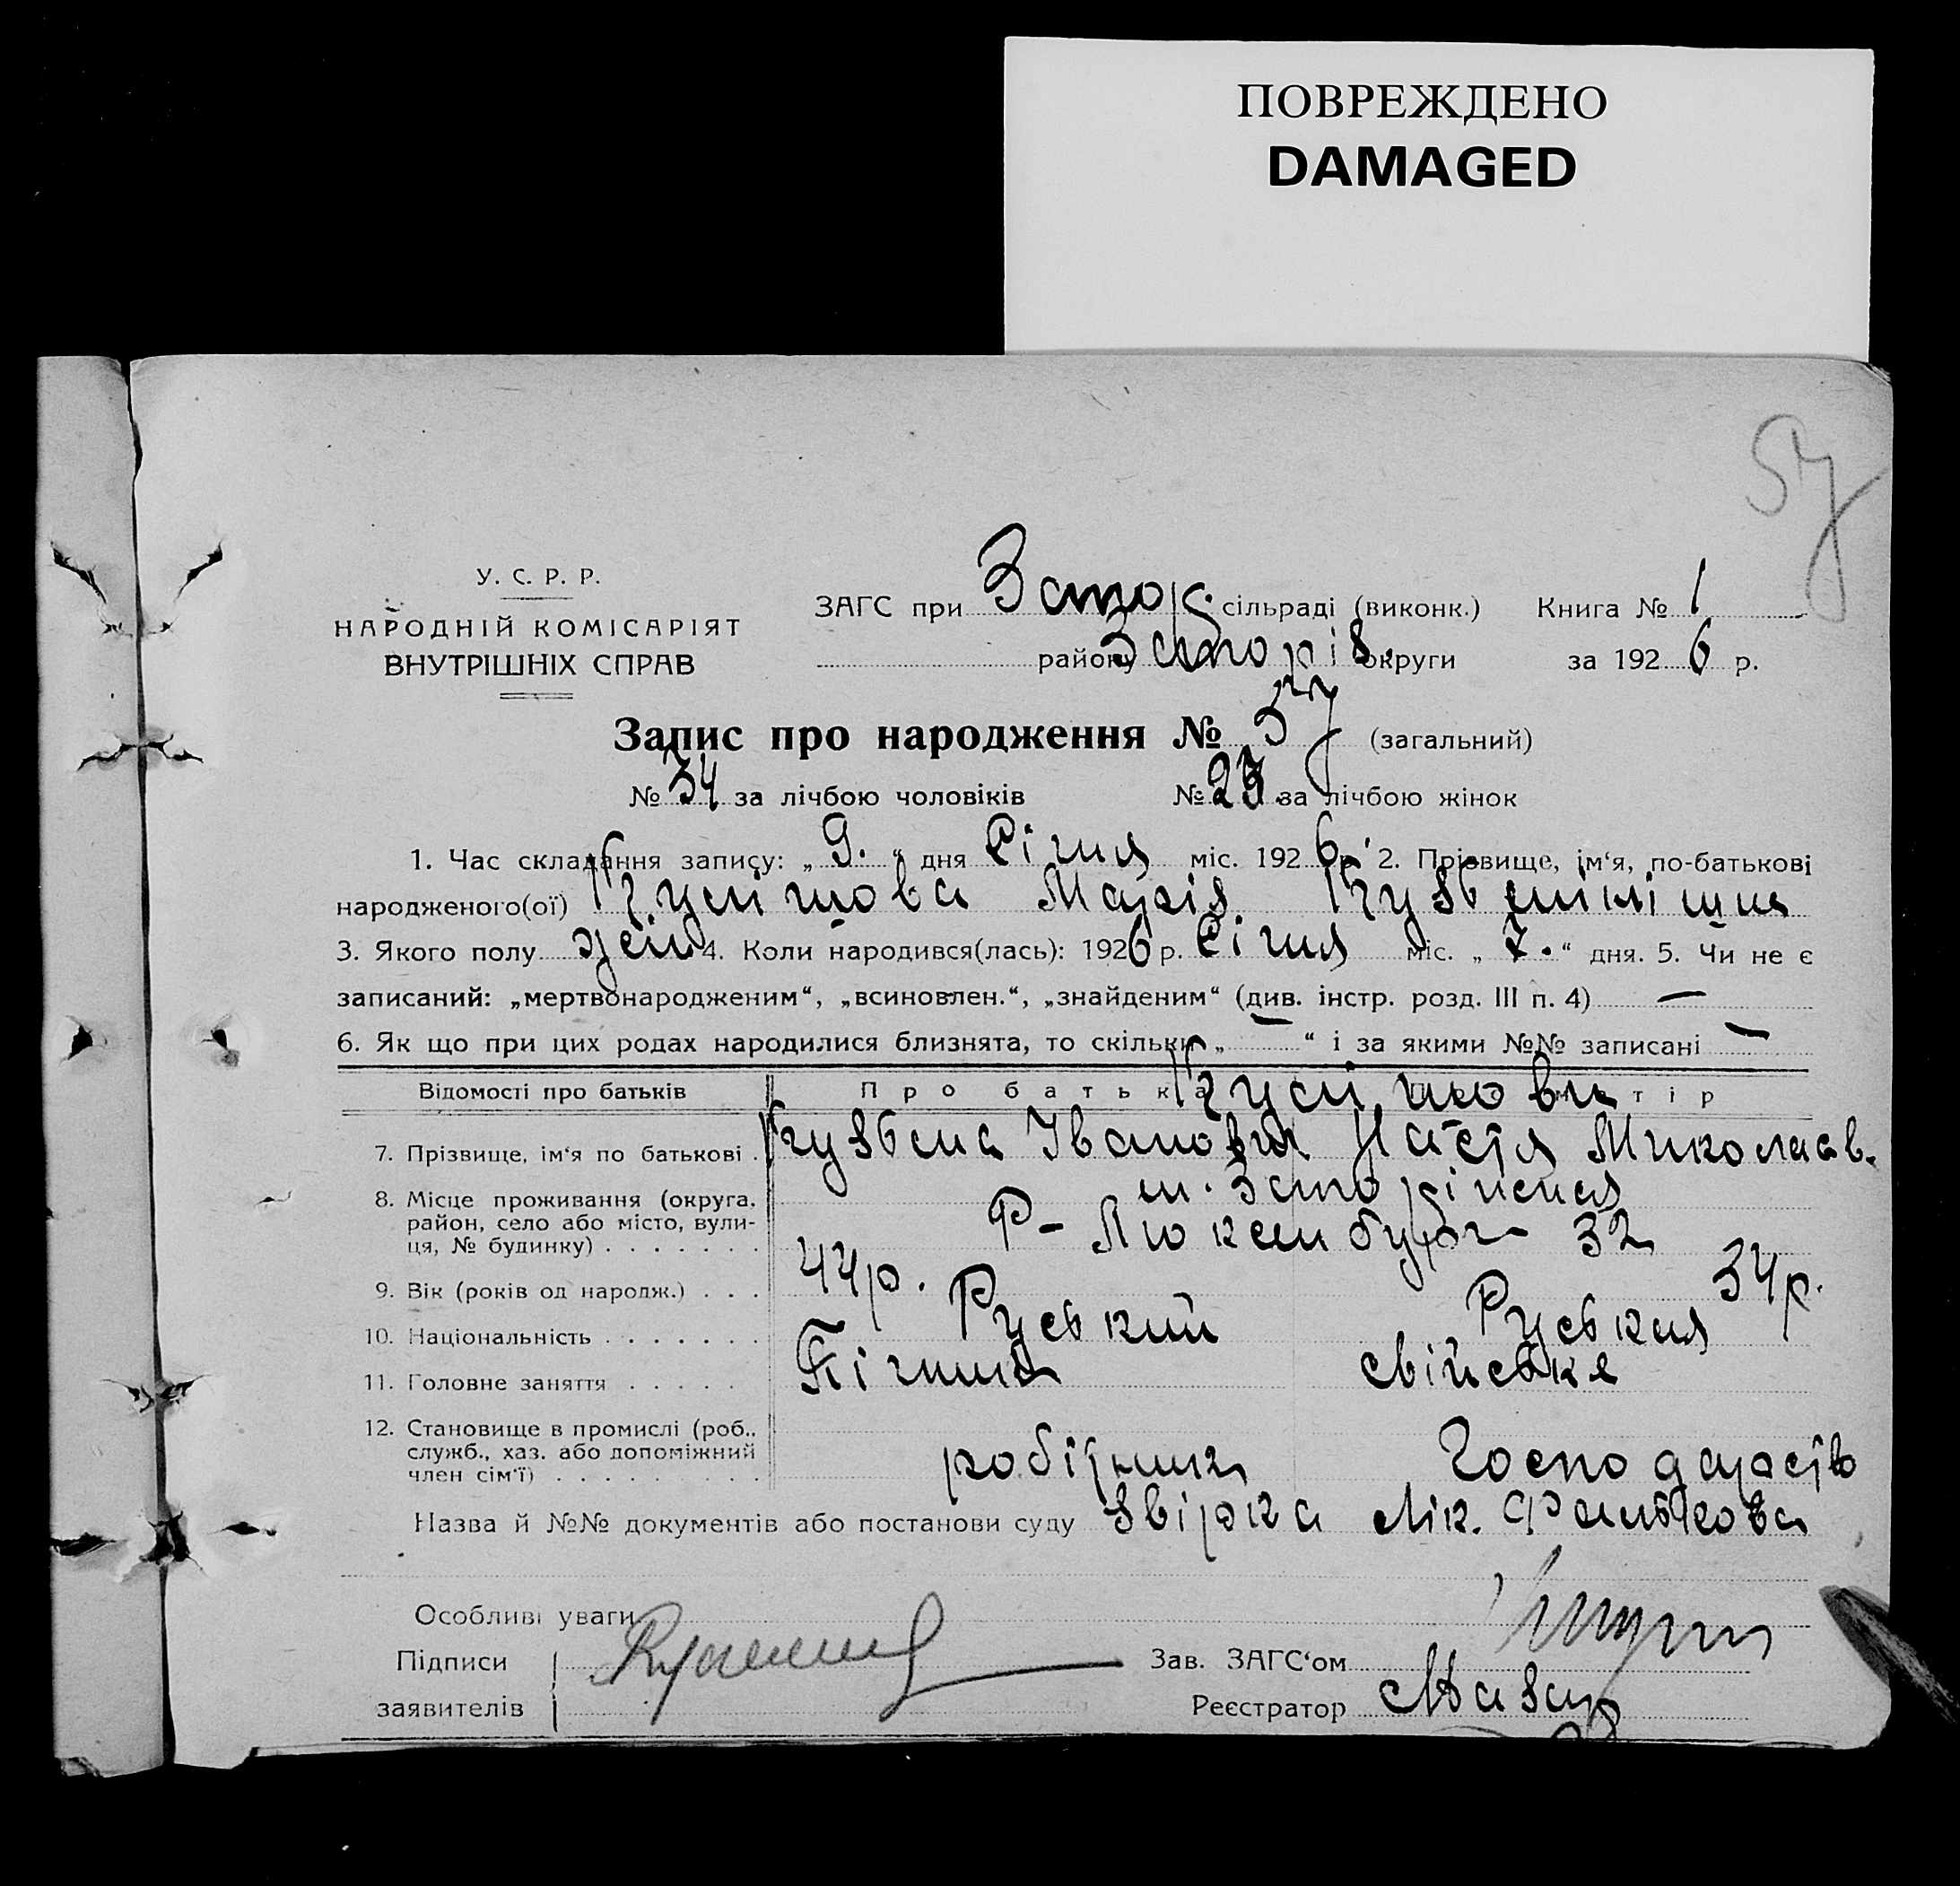 ПОВРЕЖДЕНО
DAMAGED
57
У. С. Р. Р.
НАРОДНІЙ КОМІСАРІЯТ
ВНУТРІШНІХ СПРАВ
ЗАГС при сільраді (виконк.) Книга № 1
району округи за 1926 р.
Запис про народження № 57 (загальний)
№ 34 за лічбою чоловіків № 23 за лічбою жінок
1. Час складання запису: „ 9. “ дня Січня міс. 1926 р. 2. Прізвище, ім‘я, по-батькові
народженого(ої) Марія
3. Якого полу жін 4. Коли народився(лась): 1926 р. Січня міс. „ 7. “ дня. 5. Чи не є
записаний: „мертвонародженим“, „всиновлен.“, „знайденим“ (див. інстр. розд. III п. 4) —
6. Як що при цих родах народилися близнята, то скільки „ — “ і за якими №№ записані —
Відомості про батьків Про батька
7. Прізвище, ім‘я по батькові . Кузьма Іванович Настя Миколаєв.
8. Місце проживання (округа, район, село або місто, вулиця, № будинку) . . . . . . .
Р- Люксембург 32
9. Вік (років од народж.) . . . 44р. 34р.
10. Національність . . . . . . . Руський Руськая
11. Головне заняття . . . . . свійське
12. Становище в промислі (роб., служб., хаз. або допоміжний член сім‘ї) . . . . . . . . . робітник Господарство
Назва й №№ документів або постанови суду звірка лік.
Особливі уваги
Підписи Зав. ЗАГС‘ом
заявителів Реєстратор